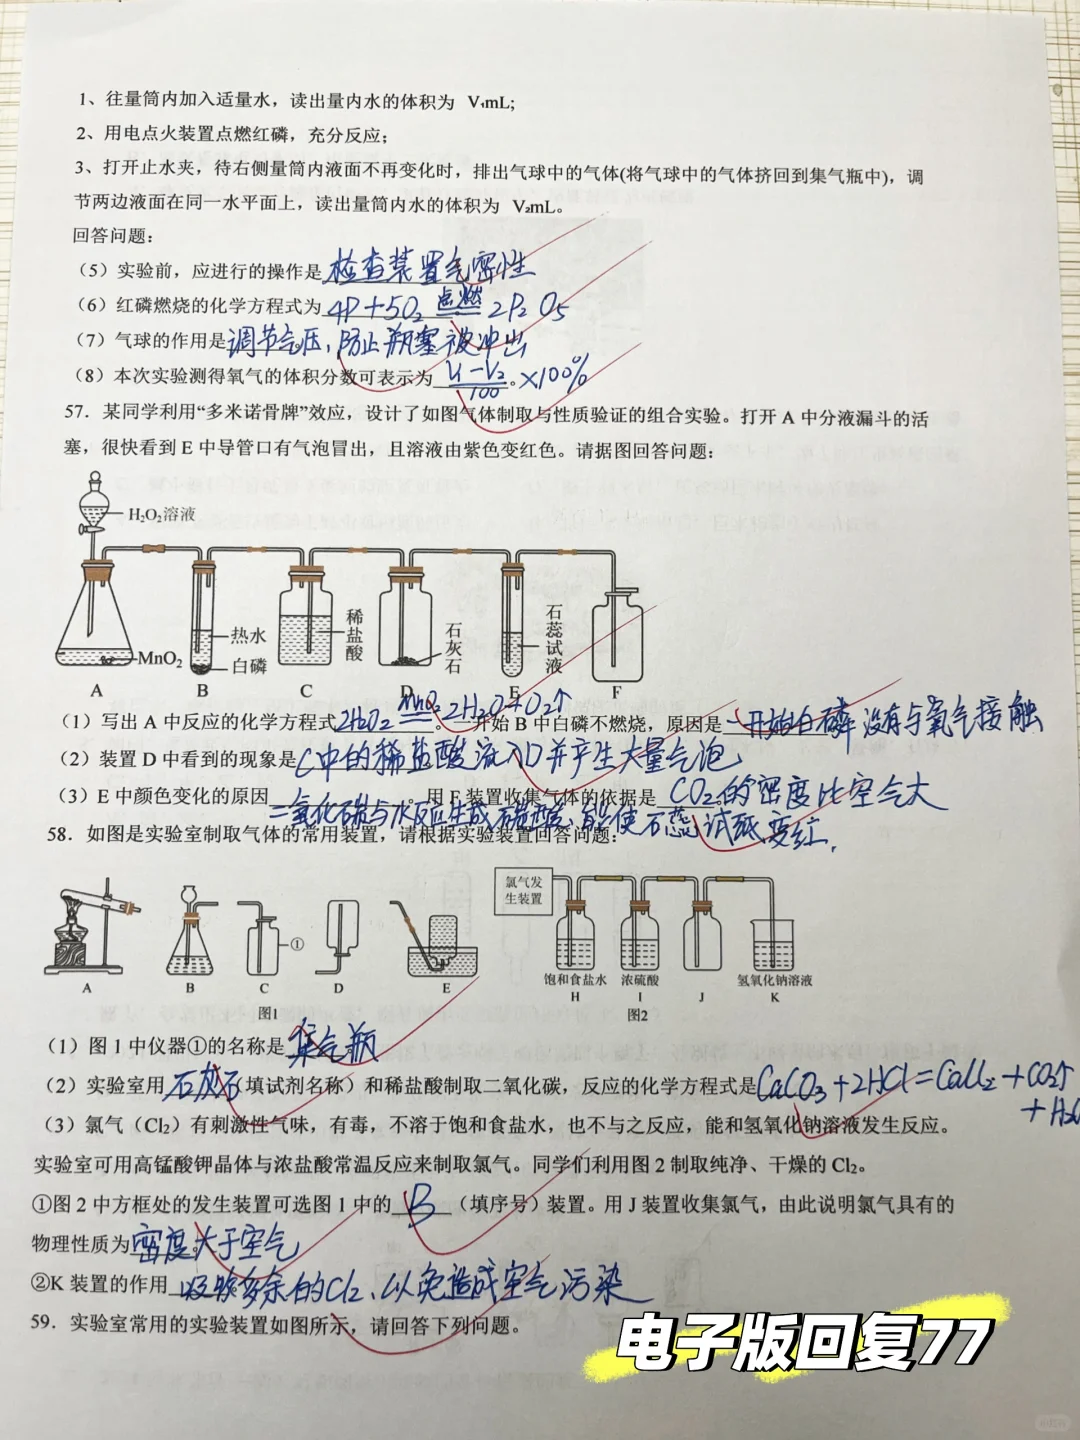 1、往量筒内加入适量水，读出量内水的体积为 V₁mL;
2、用电点火装置点燃红磷，充分反应；
3、打开止水夹，待右侧量筒内液面不再变化时，排出气球中的气体(将气球中的气体挤回到集气瓶中)，调
节两边液面在同一水平面上，读出量筒内水的体积为 V₂mL。
回答问题：
（5）实验前，应进行的操作是 检查装置气密性
（6）红磷燃烧的化学方程式为 4P+5O₂ 点燃 == 2P₂O₅
（7）气球的作用是 调节气压，防止瓶塞被冲出
（8）本次实验测得氧气的体积分数可表示为 V₁-V₂/100 。×100%
57．某同学利用“多米诺骨牌”效应，设计了如图气体制取与性质验证的组合实验。打开 A 中分液漏斗的活
塞，很快看到 E 中导管口有气泡冒出，且溶液由紫色变红色。请据图回答问题：
H₂O₂溶液
MnO₂
热水
白磷
稀盐酸
石灰石
石蕊试液
A B C D E F
（1）写出 A 中反应的化学方程式 2H₂O₂ MnO₂ == 2H₂O+O₂↑ 。一开始 B 中白磷不燃烧，原因是 一开始白磷没有与氧气接触
（2）装置 D 中看到的现象是 C中的稀盐酸流入D并产生大量气泡
（3）E 中颜色变化的原因 。用 F 装置收集气体的依据是 CO₂的密度比空气大
二氧化碳与水反应生成碳酸，能使石蕊试纸变红.
58．如图是实验室制取气体的常用装置，请根据实验装置回答问题：
氯气发
生装置
①
饱和食盐水 浓硫酸 氢氧化钠溶液
A B C D E H I J K
图1 图2
（1）图 1 中仪器①的名称是 集气瓶
（2）实验室用 石灰石 (填试剂名称）和稀盐酸制取二氧化碳，反应的化学方程式是 CaCO₃+2HCl=CaCl₂+CO₂↑
+H₂O
（3）氯气（Cl₂）有刺激性气味，有毒，不溶于饱和食盐水，也不与之反应，能和氢氧化钠溶液发生反应。
实验室可用高锰酸钾晶体与浓盐酸常温反应来制取氯气。同学们利用图 2 制取纯净、干燥的 Cl₂。
①图 2 中方框处的发生装置可选图 1 中的 B （填序号）装置。用 J 装置收集氯气，由此说明氯气具有的
物理性质为 密度大于空气
②K 装置的作用 吸收多余的Cl₂，以免造成空气污染
59．实验室常用的实验装置如图所示，请回答下列问题。
电子版回复77
小红书